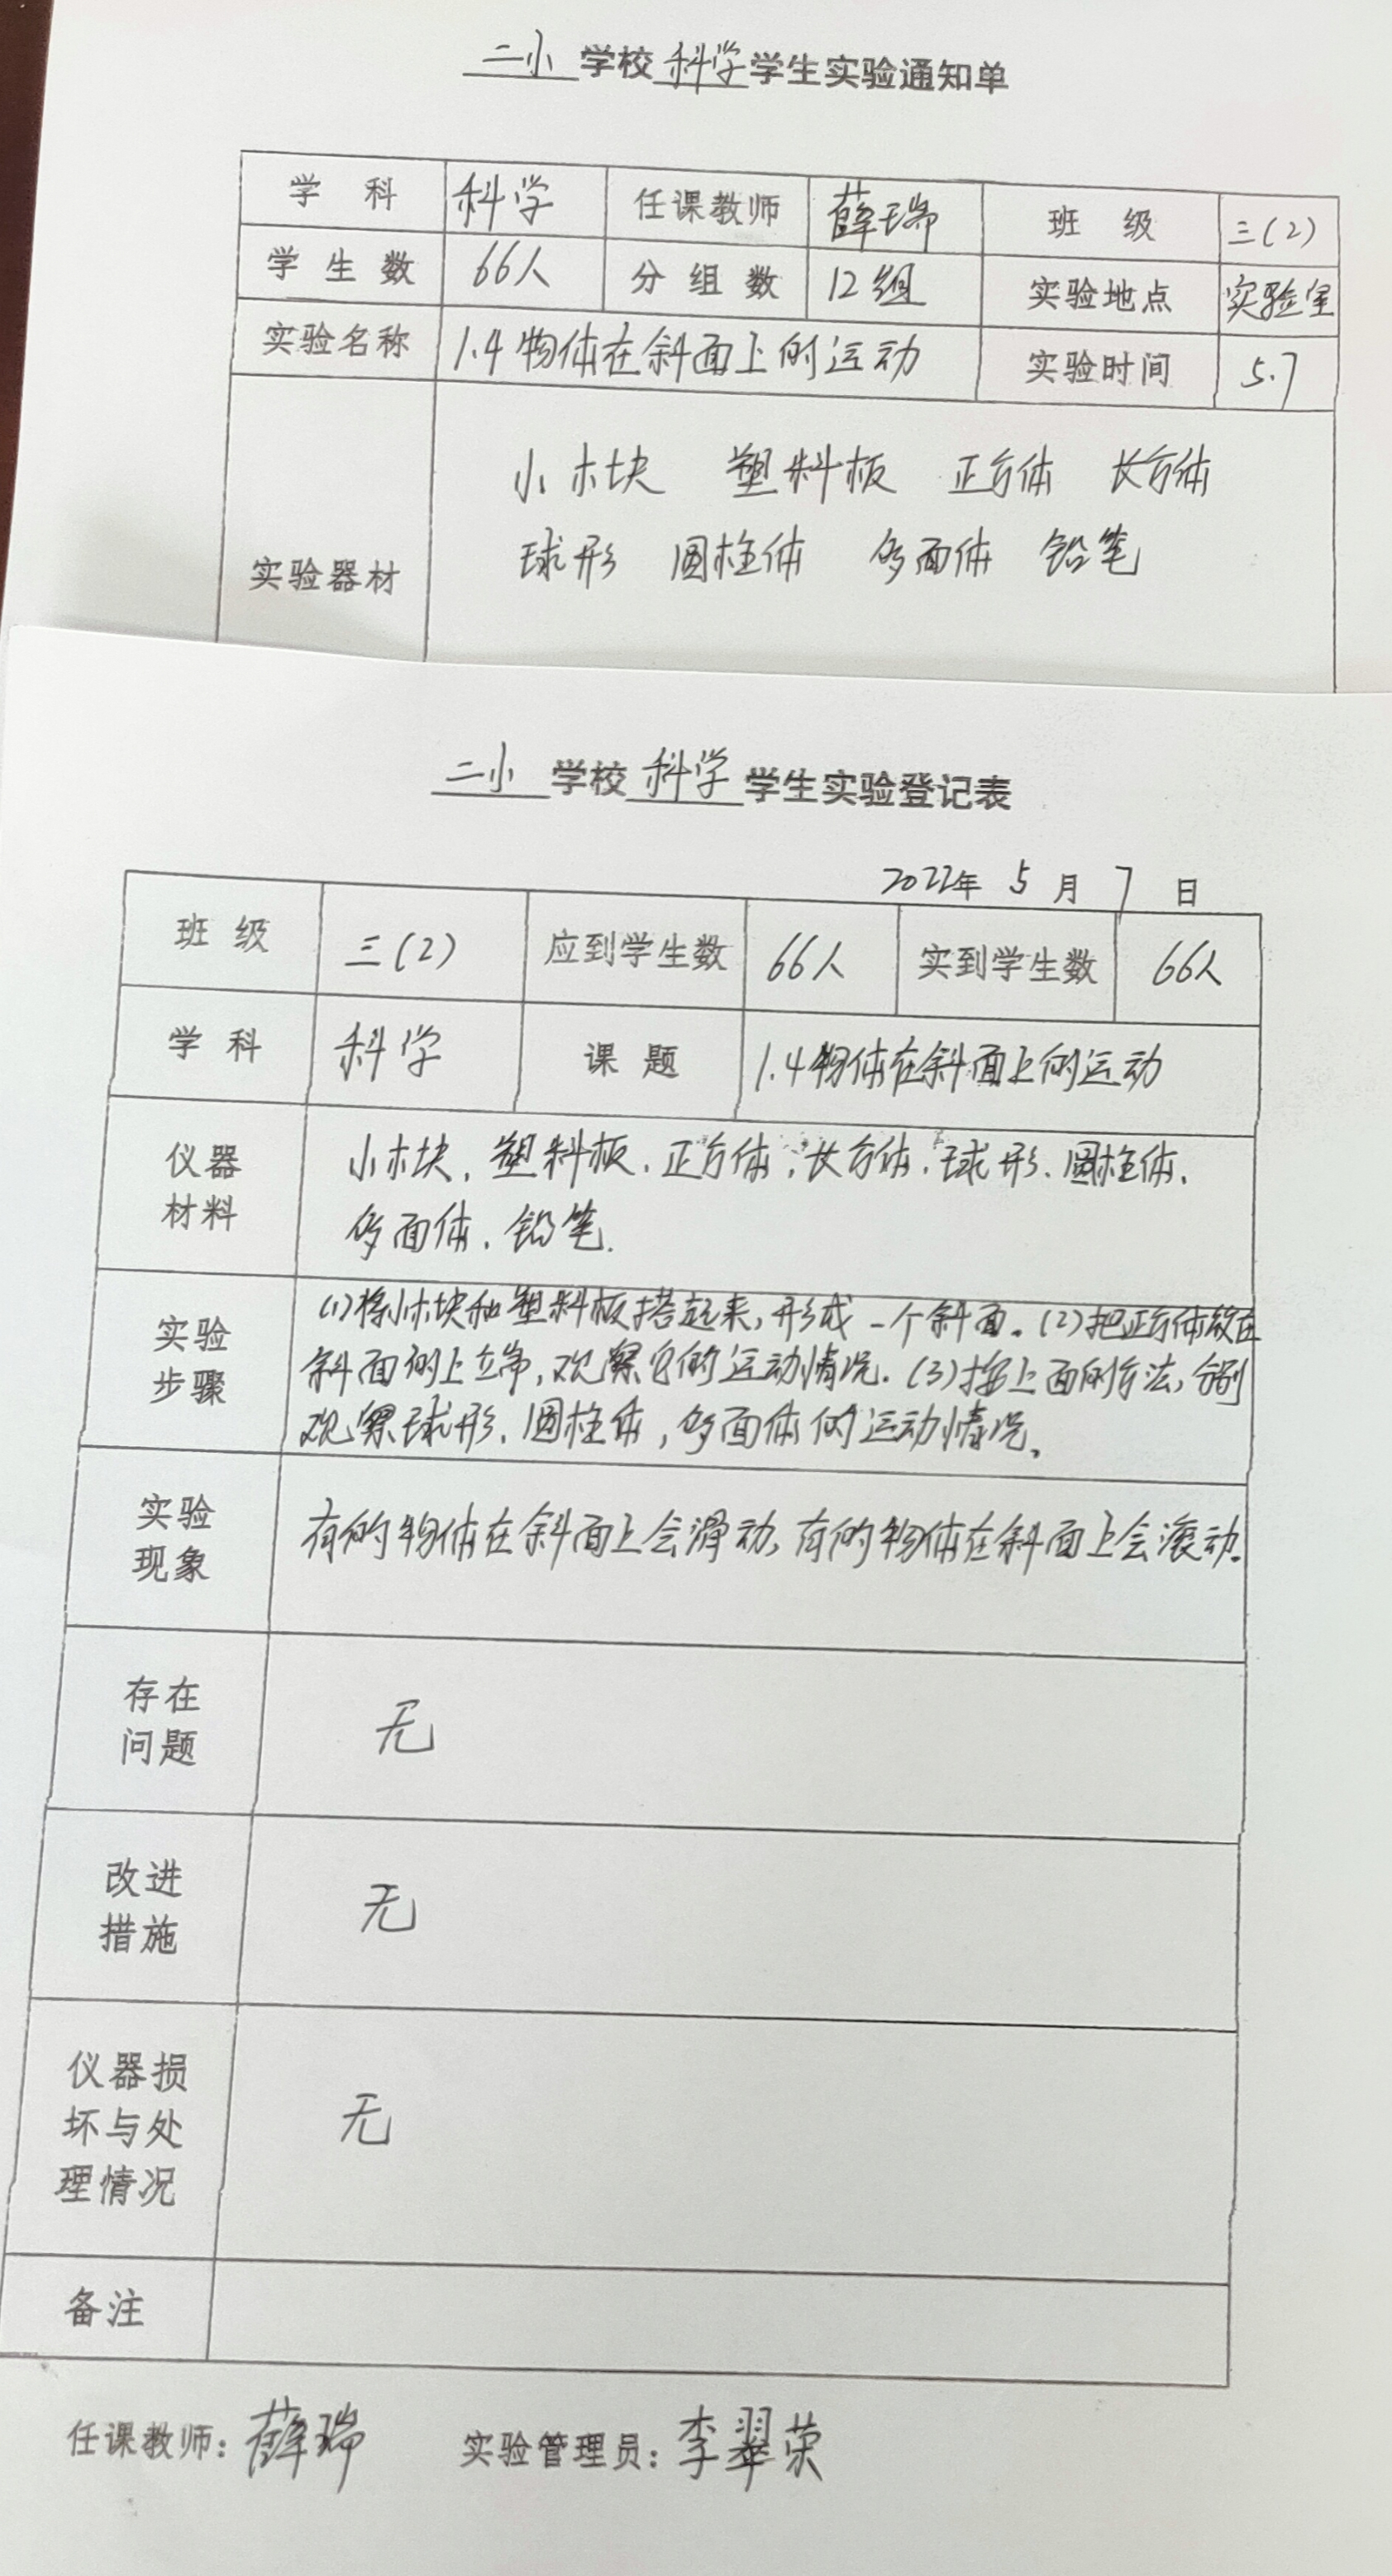 二小 学校 科学 学生实验通知单
学 科 科学 任课教师 薛瑞 班 级 三(2)
学 生 数 66人 分 组 数 12组 实验地点 实验室
实验名称 1.4物体在斜面上的运动 实验时间 5.7
小木块 塑料板 正方体 长方体
球形 圆柱体 多面体 铅笔
实验器材
二小 学校 科学 学生实验登记表
2022年 5 月 7 日
班 级 三(2) 应到学生数 66人 实到学生数 66人
学 科 科学 课 题 1.4物体在斜面上的运动
仪器
材料
小木块、塑料板、正方体、长方体、球形、圆柱体、
多面体、铅笔.
实验
步骤
(1)将小木块和塑料板搭起来,形成一个斜面。(2)把正方体放在
斜面的上立端,观察它的运动情况.(3)按上面的方法,分别
观察球形、圆柱体,多面体的运动情况。
实验
现象
有的物体在斜面上会滑动,有的物体在斜面上会滚动.
存在
问题
无
改进
措施
无
仪器损
坏与处
理情况
无
备注
任课教师:薛瑞 实验管理员:李翠荣